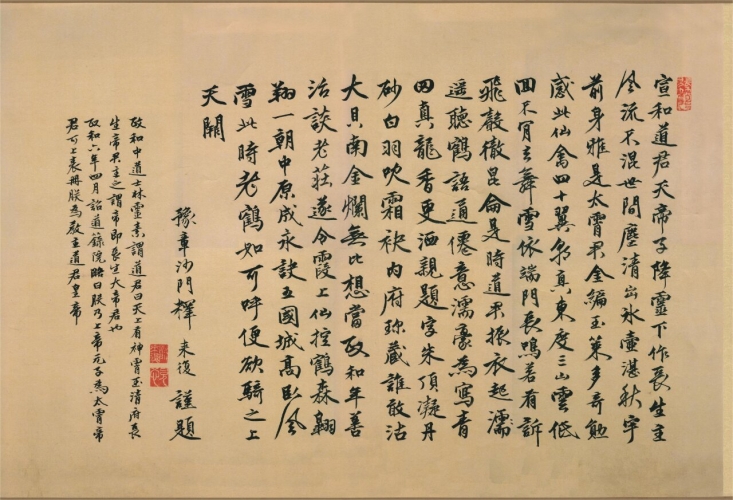 宣和道君天帝子降靈下作長生主
風流不混世間塵清출冰壺湛秋宇
前身雅是太霄君金編玉策多奇勳
感此仙禽四十翼朝真東度三山雲低
回不肯去舞雪依端門長鳴若有訴
飛聲徹崑侖是時道君振衣起
遥聽鶴語通僊意濡豪為寫青
田真龍香更洒親題字朱頂凝丹
砂白羽吹霜袂內府珎藏誰敢沽
大貝南金爛無比想當政和年善
活談老莊遂令霞上仙控鶴森翱
翔一朝中原成永訣五國城高臥風
雪此時老鶴如可呼便欲騎之上
天闕
豫章沙門釋 来復 謹題
政和中道士林靈素謂道君曰天上有神霄玉清府長
生帝君主之謂帝即長生大帝君也
政和六年四月詔道籙院略曰朕乃上帝元子為太霄帝
君可上表冊朕為教主道君皇帝